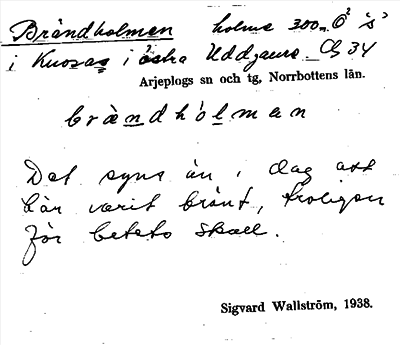 Brändholmen holme 300 m Ö "S"
i Kuosas i östra Uddjaure Ch 34
Arjeplogs sn och tg, Norrbottens län.
brændhólman
Det syns än i dag att
här varit bränt, troligen
för betets skull.
Sigvard Wallström, 1938.